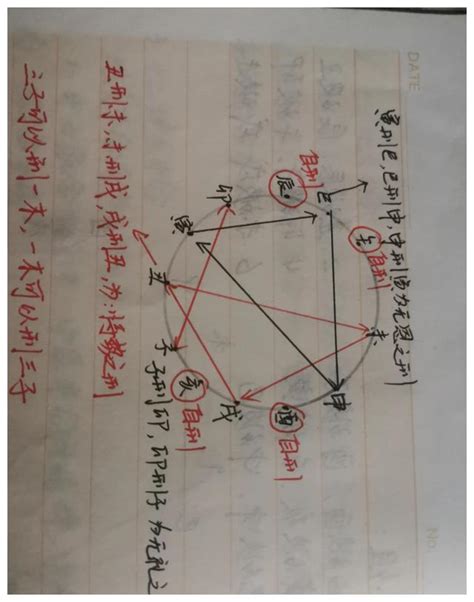 DATE
No.
寅刑巳,巳刑申,申刑寅为无恩之刑
午 自刑
未
巳
申
自刑
辰
酉 自刑
卯
戌
寅
亥 自刑
子
丑
子刑卯,卯刑子 为无礼之
丑刑未,未刑戌,戌刑丑,为:恃势之刑
三子可以刑一木,一木可以刑三子